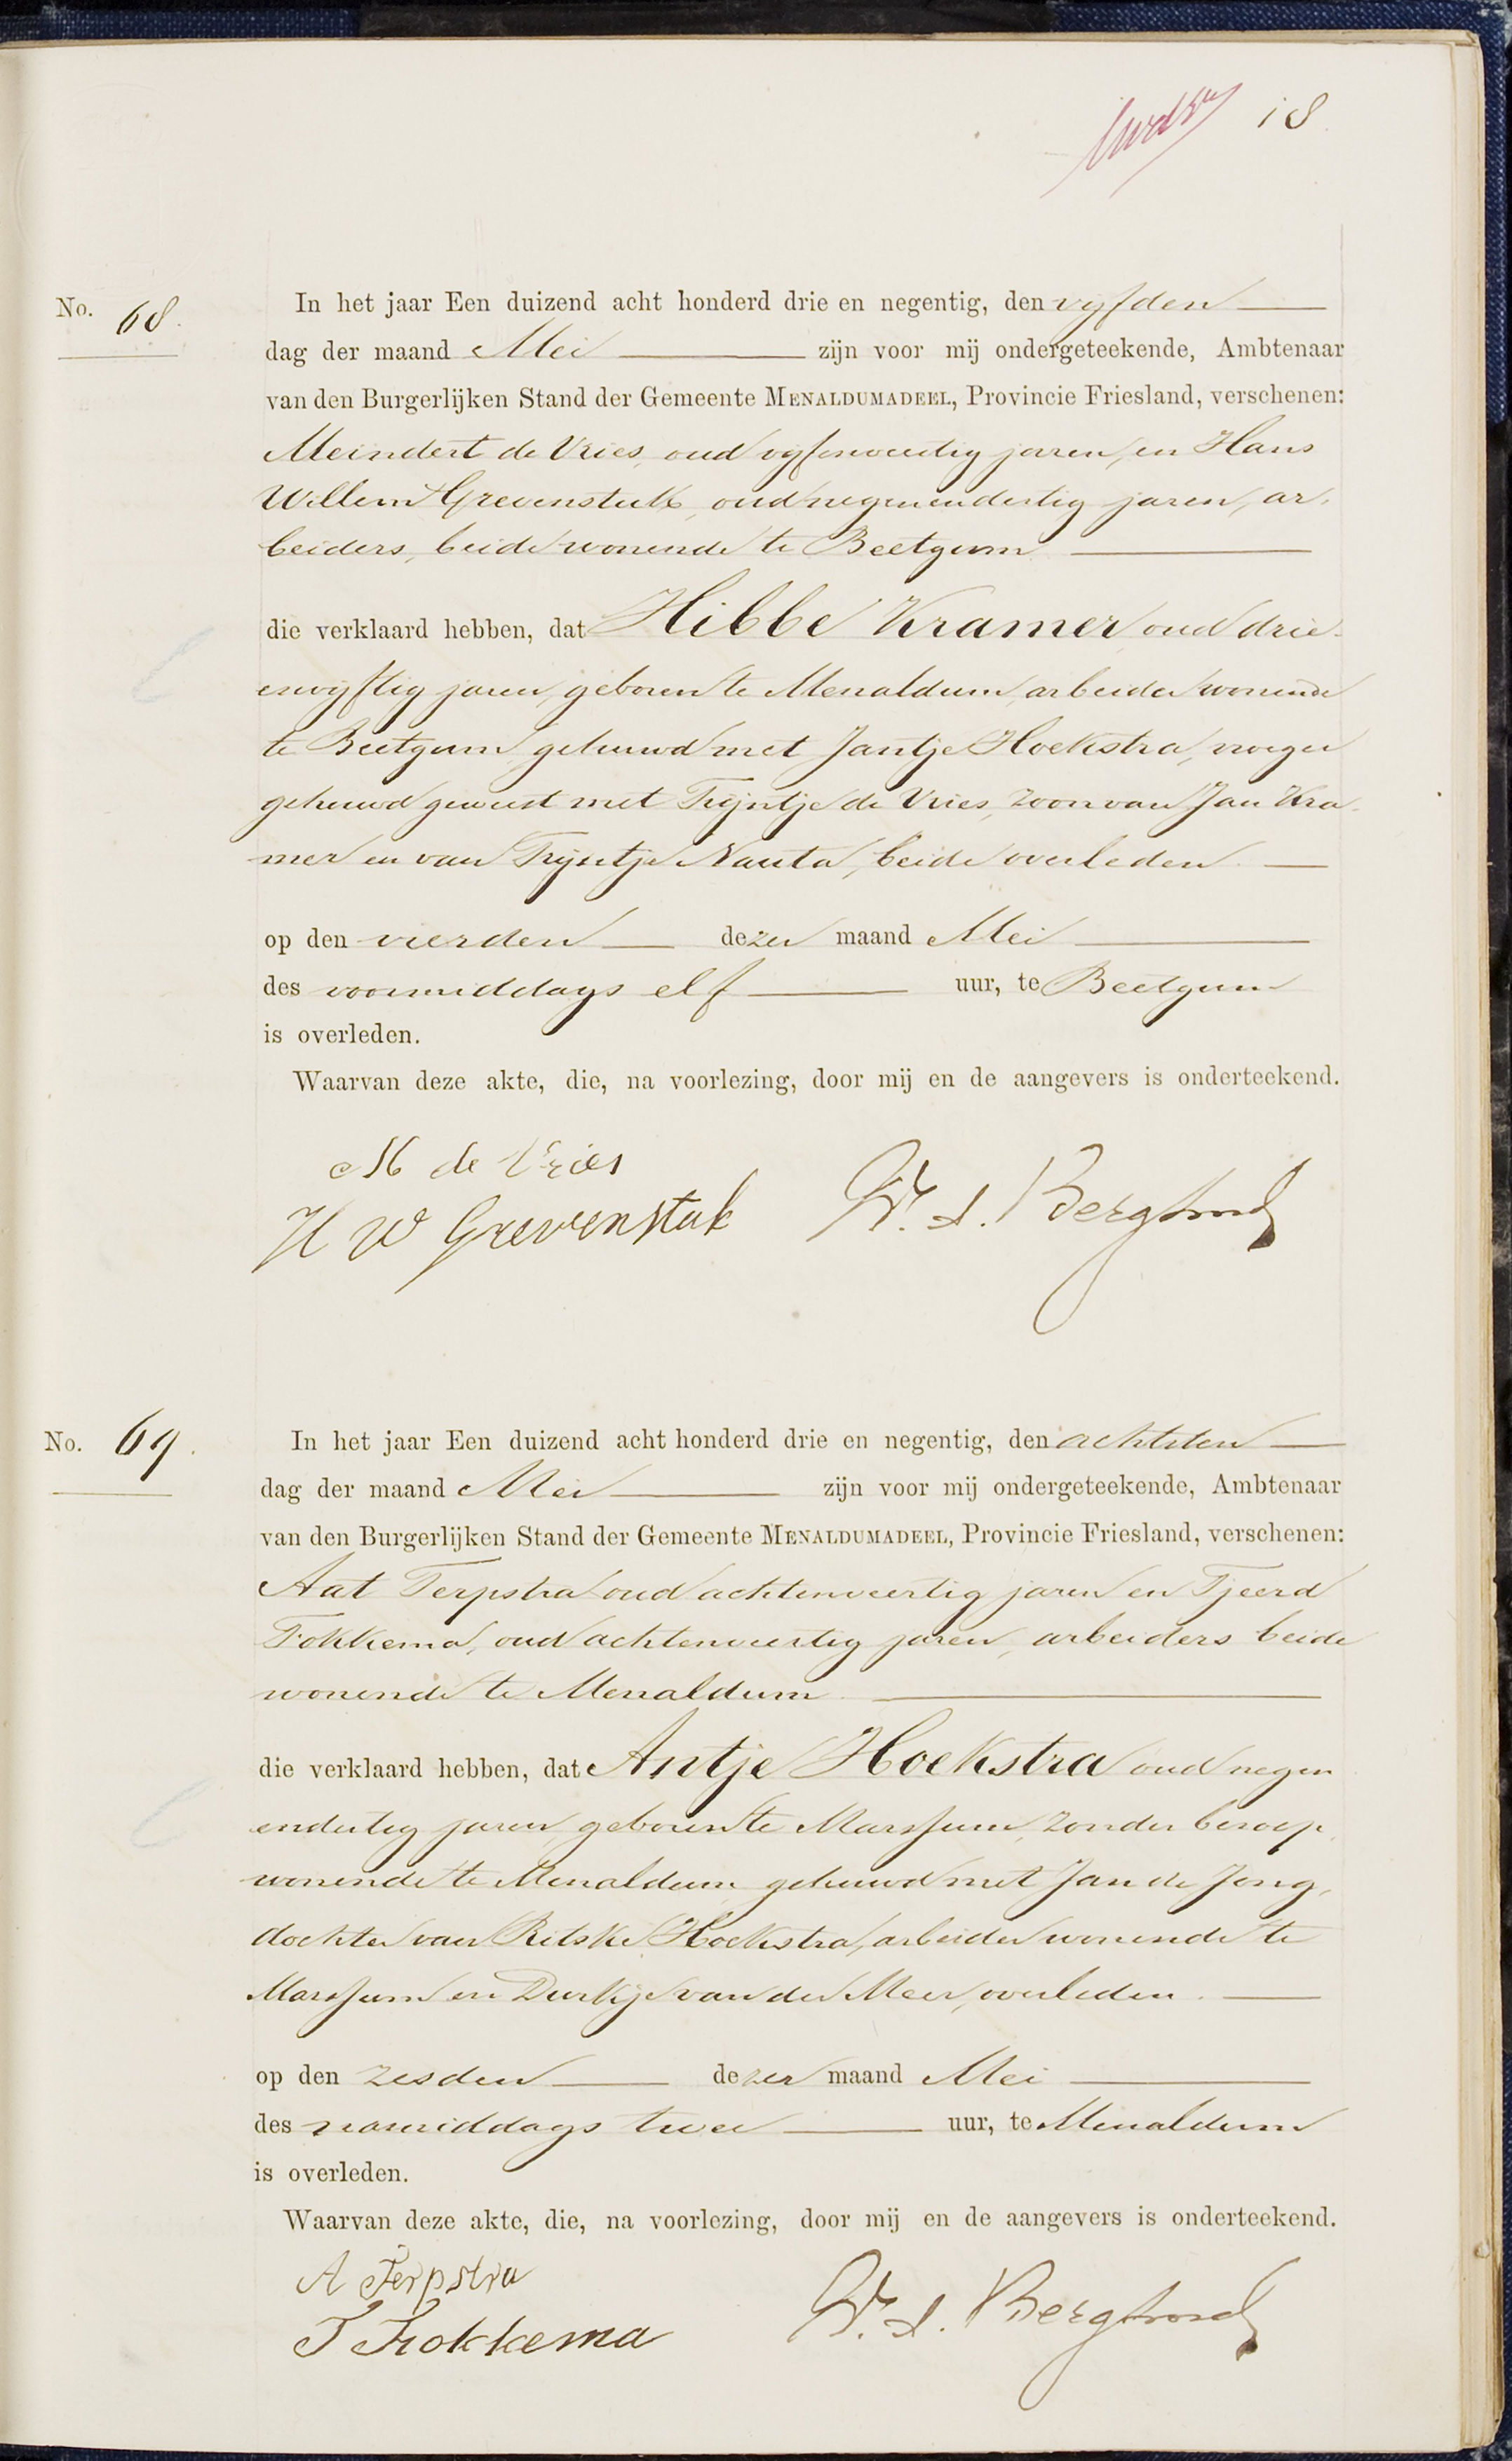 18
No. 68.
In het jaar Een duizend acht honderd drie en negentig, den vijfden
dag der maand Mei zijn voor mij ondergeteekende, Ambtenaar
van den Burgerlijken Stand der Gemeente MENALDUMADEEL, Provincie Friesland, verschenen:
Meindert de Vries, oud vijfenveertig jaren, en Hans
Willem Grevenstuk, oud negenendertig jaren, ar-
beiders, beide wonende te Beetgum
die verklaard hebben, dat Hibbe Kramer, oud drie-
envijftig jaren, geboren te Menaldum, arbeider wonende
te Beetgum, gehuwd met Jantje Hoekstra, vroeger
gehuwd geweest met Trijntje de Vries, zoon van Jan Kra-
mer en van Trijntje Nauta, beide overleden.
op den vierden dezer maand Mei
des voormiddags elf uur, te Beetgum
is overleden.
Waarvan deze akte, die, na voorlezing, door mij en de aangevers is onderteekend.
M de Vries
H W Grevenstuk
No. 69.
In het jaar Een duizend acht honderd drie en negentig, den achtsten
dag der maand Mei zijn voor mij ondergeteekende, Ambtenaar
van den Burgerlijken Stand der Gemeente MENALDUMADEEL, Provincie Friesland, verschenen:
Aat Terpstra oud achtenveertig jaren en Tjeerd
Fokkema, oud achtenveertig jaren, arbeiders beide
wonende te Menaldum.
die verklaard hebben, dat Antje Hoekstra oud negen
endertig jaren, geboren te Marssum, zonder beroep,
wonende te Menaldum, gehuwd met Jan de Jong,
dochter van Ritske Hoekstra, arbeider wonende te
Marssum en Durkje van der Meer, overleden.
op den zesden dezer maand Mei
des namiddags twee uur, te Menaldum
is overleden.
Waarvan deze akte, die, na voorlezing, door mij en de aangevers is onderteekend.
A Terpstra
T Fokkema